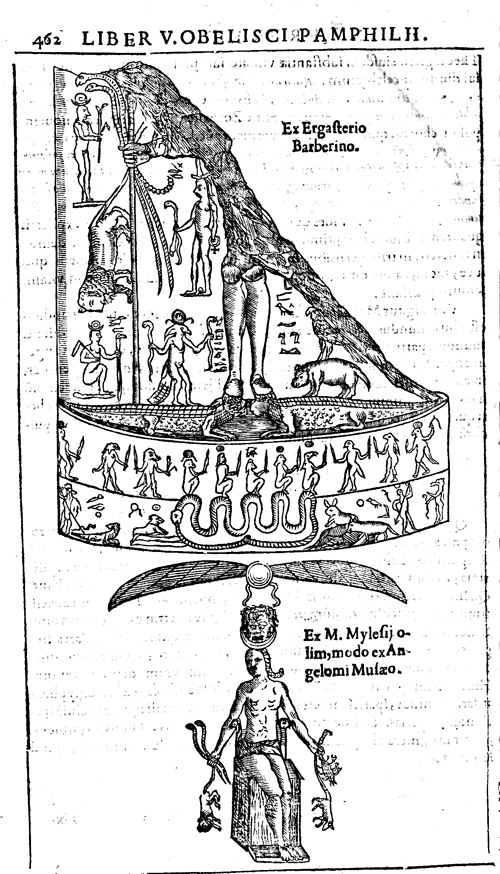 462 LIBER V. OBELISCI PAMPHILII.
Ex Ergaſterio
Barberino.
Ex M. Myleſij o-
lim, modo ex An-
gelomi Muſæo.